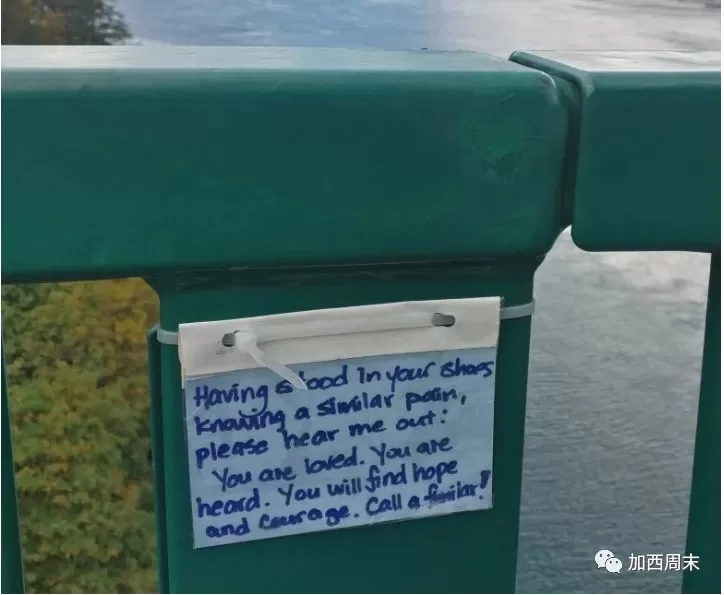 Having stood in your shoes
knowing a similar pain,
please hear me out:
You are loved. You are
heard. You will find hope
and courage. Call a
加西周末